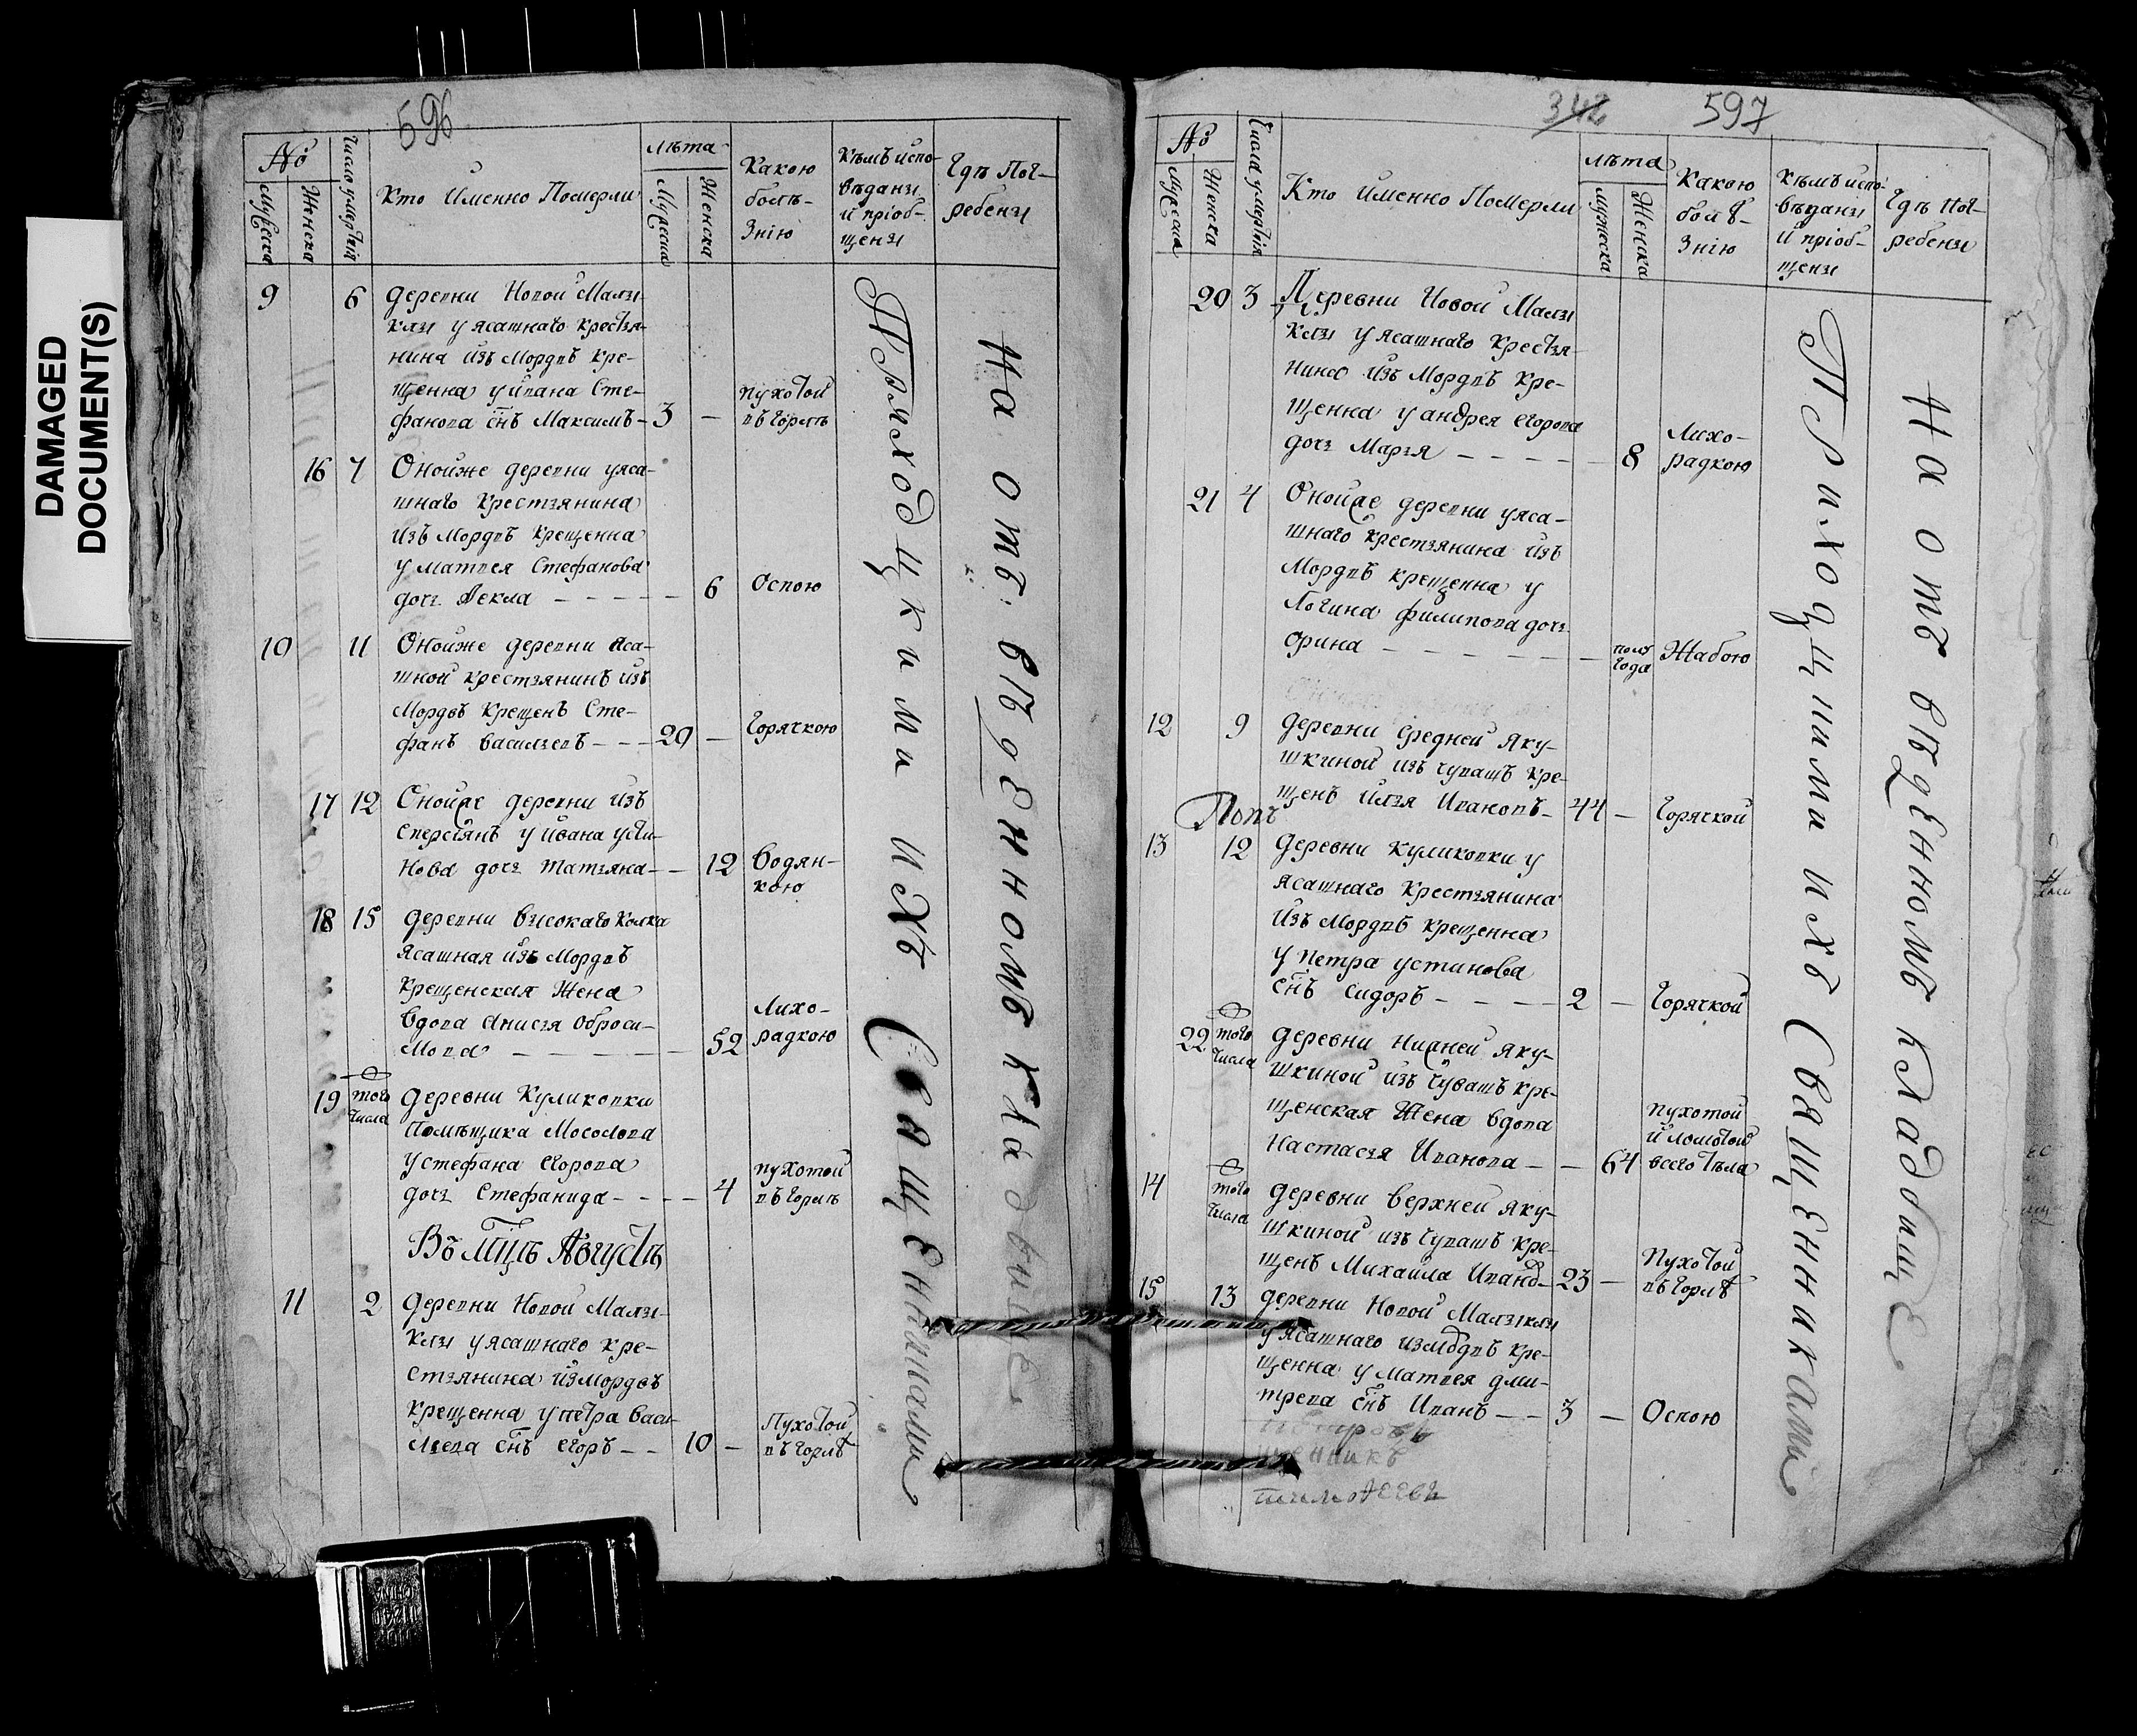 DAMAGED
DOCUMENT(S)
596
№
Мужеска
Женска
Число умертвія
Кто Именно Померли
лѣта
Мужеска
Женска
Какою
болѣ-
Знію
Кѣмъ испо-
вѣданы
и пріоб-
щены
Гдѣ Пог-
ребены
9 6 деревни Новой Малы-
клы у ясашнаго крестья-
нина изъ Мордвъ кре-
щенна у ивана Сте-
фанова снъ Максимъ - 3 - пухотой
въ горлѣ
16 7 Онойже деревни у яса-
шнаго крестьянина
изъ Мордвъ крещенна
у матвея Стефанова
дочь Ѳекла - - - - - 6 Оспою
10 11 Онойже деревни яса-
шной крестьянинъ изъ
Мордвъ крещенъ Сте-
фанъ васильевъ - - - 20 - Горячкою
17 12 Онойже деревни изъ
у ивана усти-
нова дочь татьяна - - 12 водян-
кою
18 15 деревни высокаго колка
ясашная изъ Мордвъ
крещенская жена
вдова Анисья Оброси-
мова - - - - - - 52 Лихо-
радкою
19 того
числа деревни Куликовки
помѣщика Мосолова
у стефана егорова
дочь Стефанида - - - - 4 пухотой
въ горлѣ
Въ Мцѣ Августѣ
11 2 деревни Новой Малы-
клы у ясашнаго кре-
стьянина изъ Мордвъ
крещенна у петра васи-
льева снъ егоръ - - 10 - Пухотой
въ горлѣ
Приходцкими ихъ Священниками
На отъвѣденномъ кладбище
342 597
№
Мужеска
Женска
Числа умертвія
Кто именно Померли
лѣта
мужеска
Женска
Какою
болѣ-
Знію
Кѣмъ испо-
вѣданы
и пріоб-
щены
Гдѣ Пог-
ребены
20 3 Деревни Новой Малы
клы у ясашнаго крестья-
нина изъ Мордвъ кре-
щенна у андрея егорова
дочь Марья - - - - - 8 Лихо-
радкою
21 4 Онойже деревни у яса-
шнаго крестьянина изъ
Мордвъ крещенна у
Логина филипова дочь
орина - - - - - - полъ
года Жабою
12 9 деревни средней яку-
шкиной изъ чувашъ кре-
щенъ илья Ивановъ - 44 - Горячкой
Попъ
13 12 деревни куликовки у
ясашнаго крестьянина
изъ Мордвъ крещенна
у петра устинова
снъ сидоръ - - - - 2 - Горячкой
22 того
числа деревни нижней яку-
шкиной изъ чувашъ кре-
щенская жена вдова
настасья Иванова - - 64 пухотой
и ломотой
всего тѣла
14 того
числа деревни верхней яку-
шкиной изъ чувашъ кре-
щенъ Михаила Иванов - 23 - Пухотой
въ горлѣ
15 13 деревни Новой Малыклы
у ясашнаго измордвъ кре-
щенна у матвея дми-
трева снъ Иванъ - - 3 - Оспою
щенникъ
тимоѳеевъ
Приходцкими ихъ Священниками
На отъ вѣденномъ кладбище